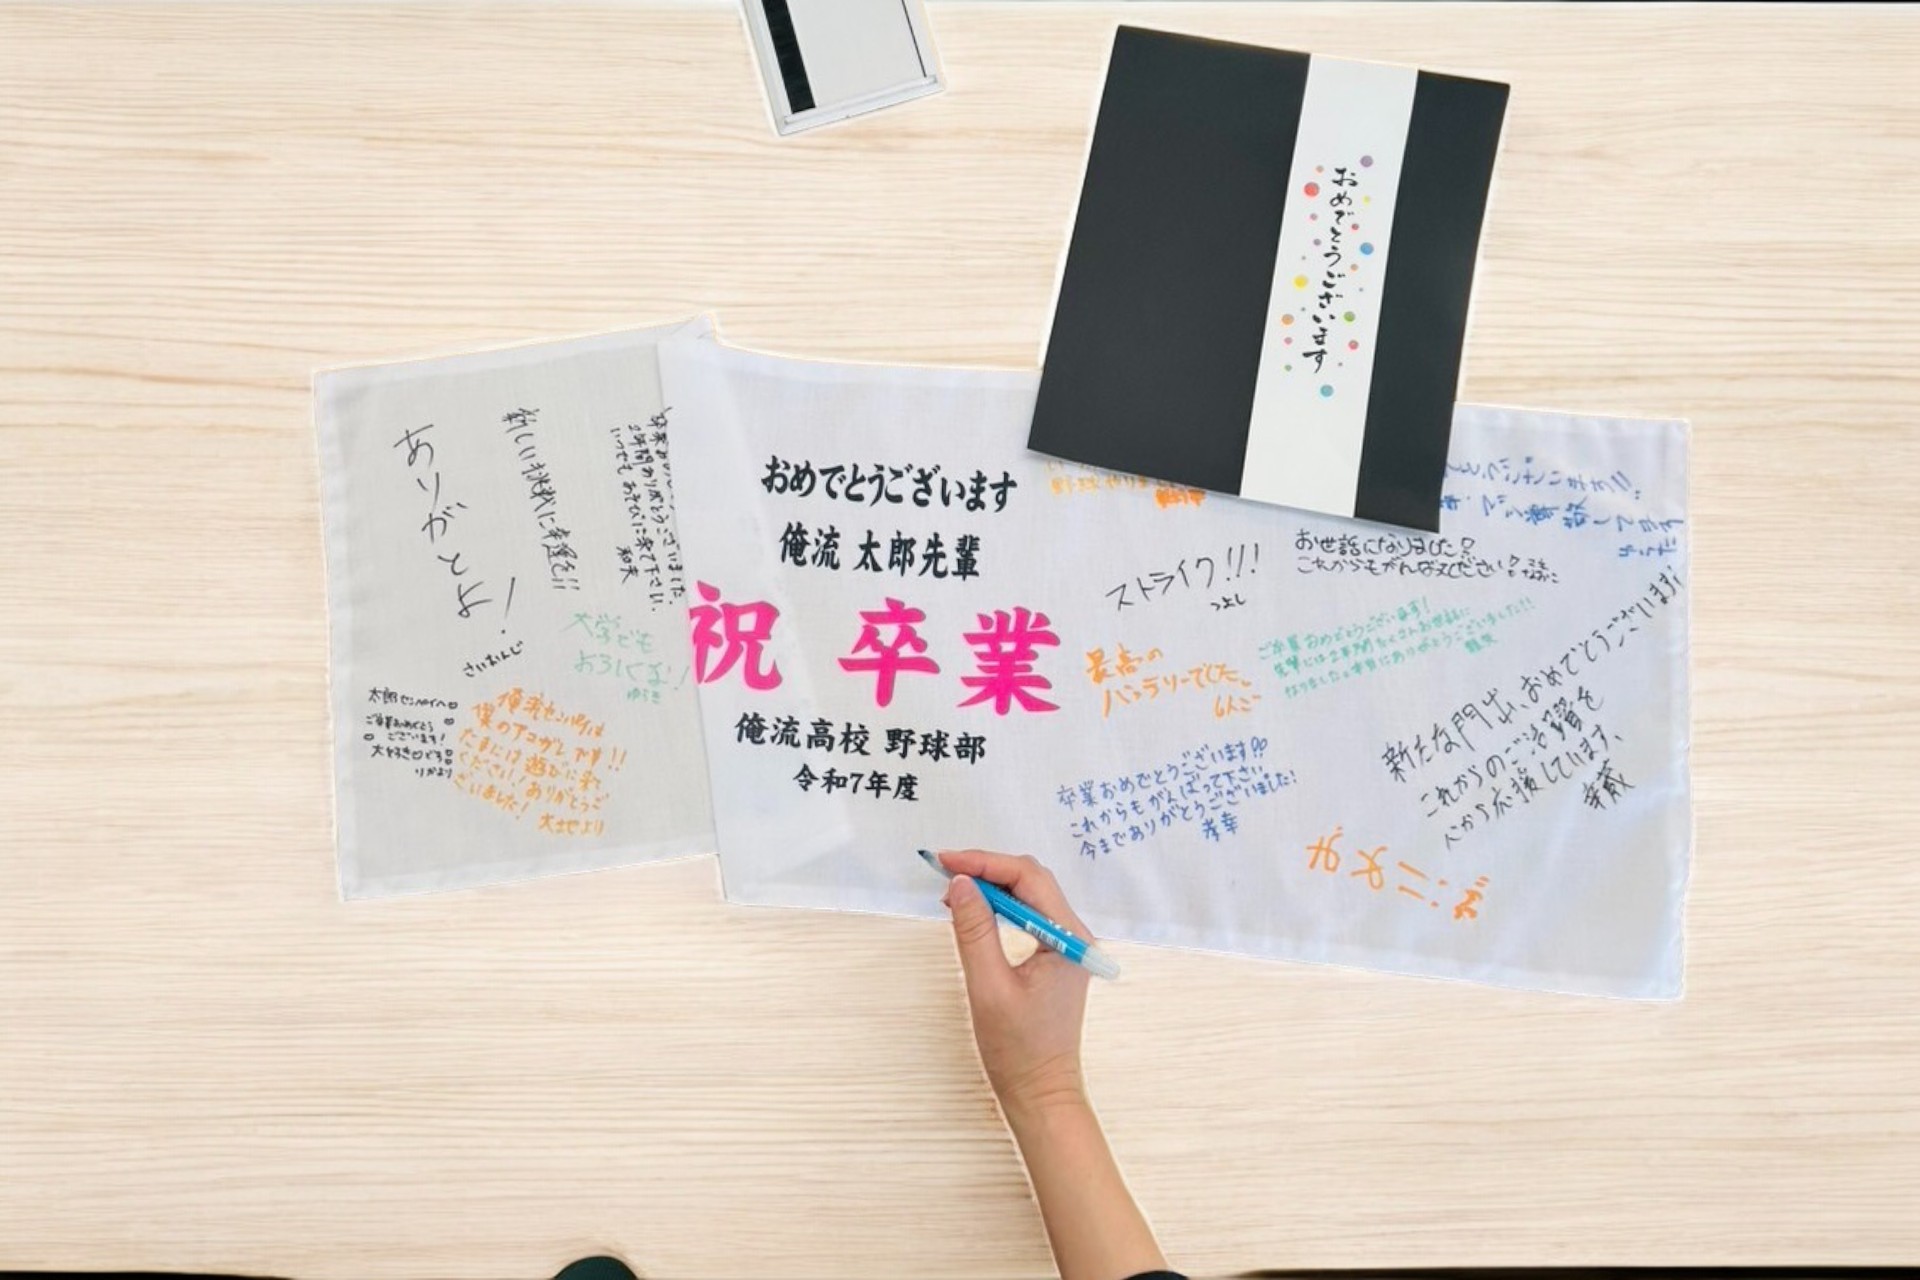 おめでとうございます
おめでとうございます
俺流 太郎先輩
祝 卒業
俺流高校 野球部
令和7年度
ありがとよ!
さいおんじ
新しい挑戦に幸運を!!
2年間ありがとうございました。
いつでもあそびに来て下さい。
和夫
大学でも
太郎センパイへ
ご卒業おめでとう
ございます!
大好きです
りかより
俺流センパイは
僕のアコガレです!!
たまには遊びに来て
ください!ありがとうご
ざいました!
大地より
ストライク!!!
つよし
お世話になりました
これからもがんばってください
最高の
バッテリーでした。
ご卒業おめでとうございます!
先輩には2年間たくさんお世話に
なりました。本当にありがとうございました!!
新たな門出、おめでとうございます。
これからのご活躍を
心から応援しています。
卒業おめでとうございます
これからもがんばって下さい
今までありがとうございました!
孝幸